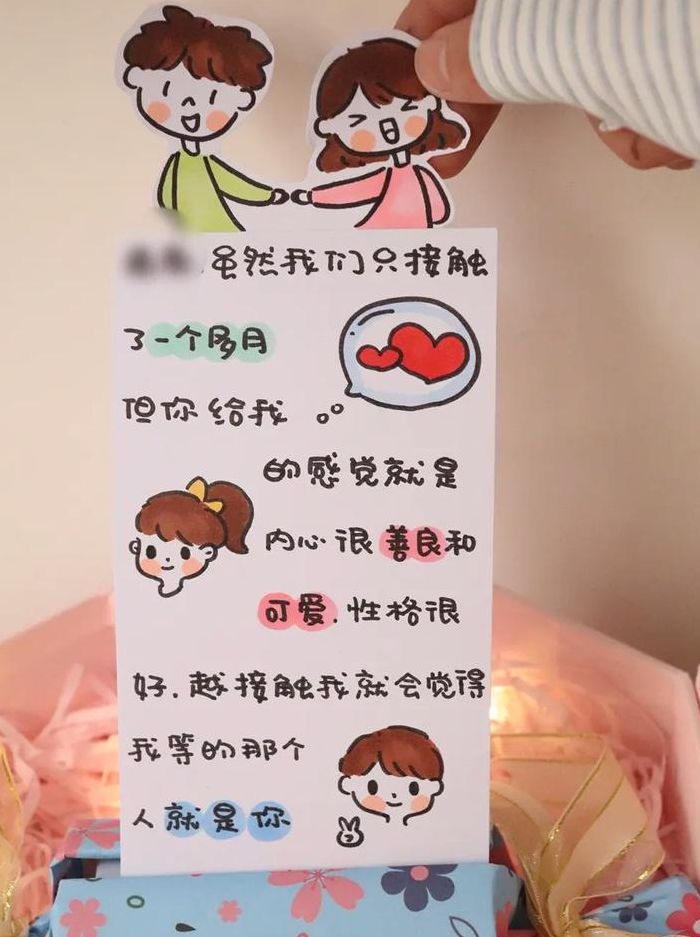 虽然我们只接触
了一个多月
但你给我
的感觉就是
内心很善良和
可爱.性格很
好.越接触我就会觉得
我等的那个
人就是你